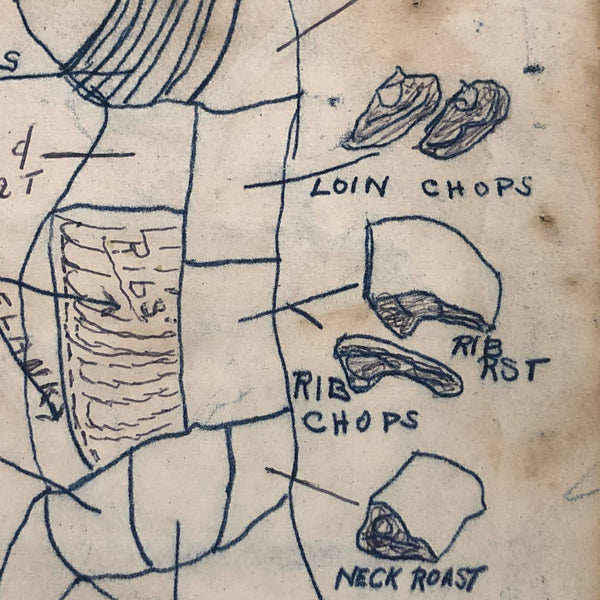 S
LOIN CHOPS
RIBS
FLANK
RIB
RST
RIB
CHOPS
NECK ROAST